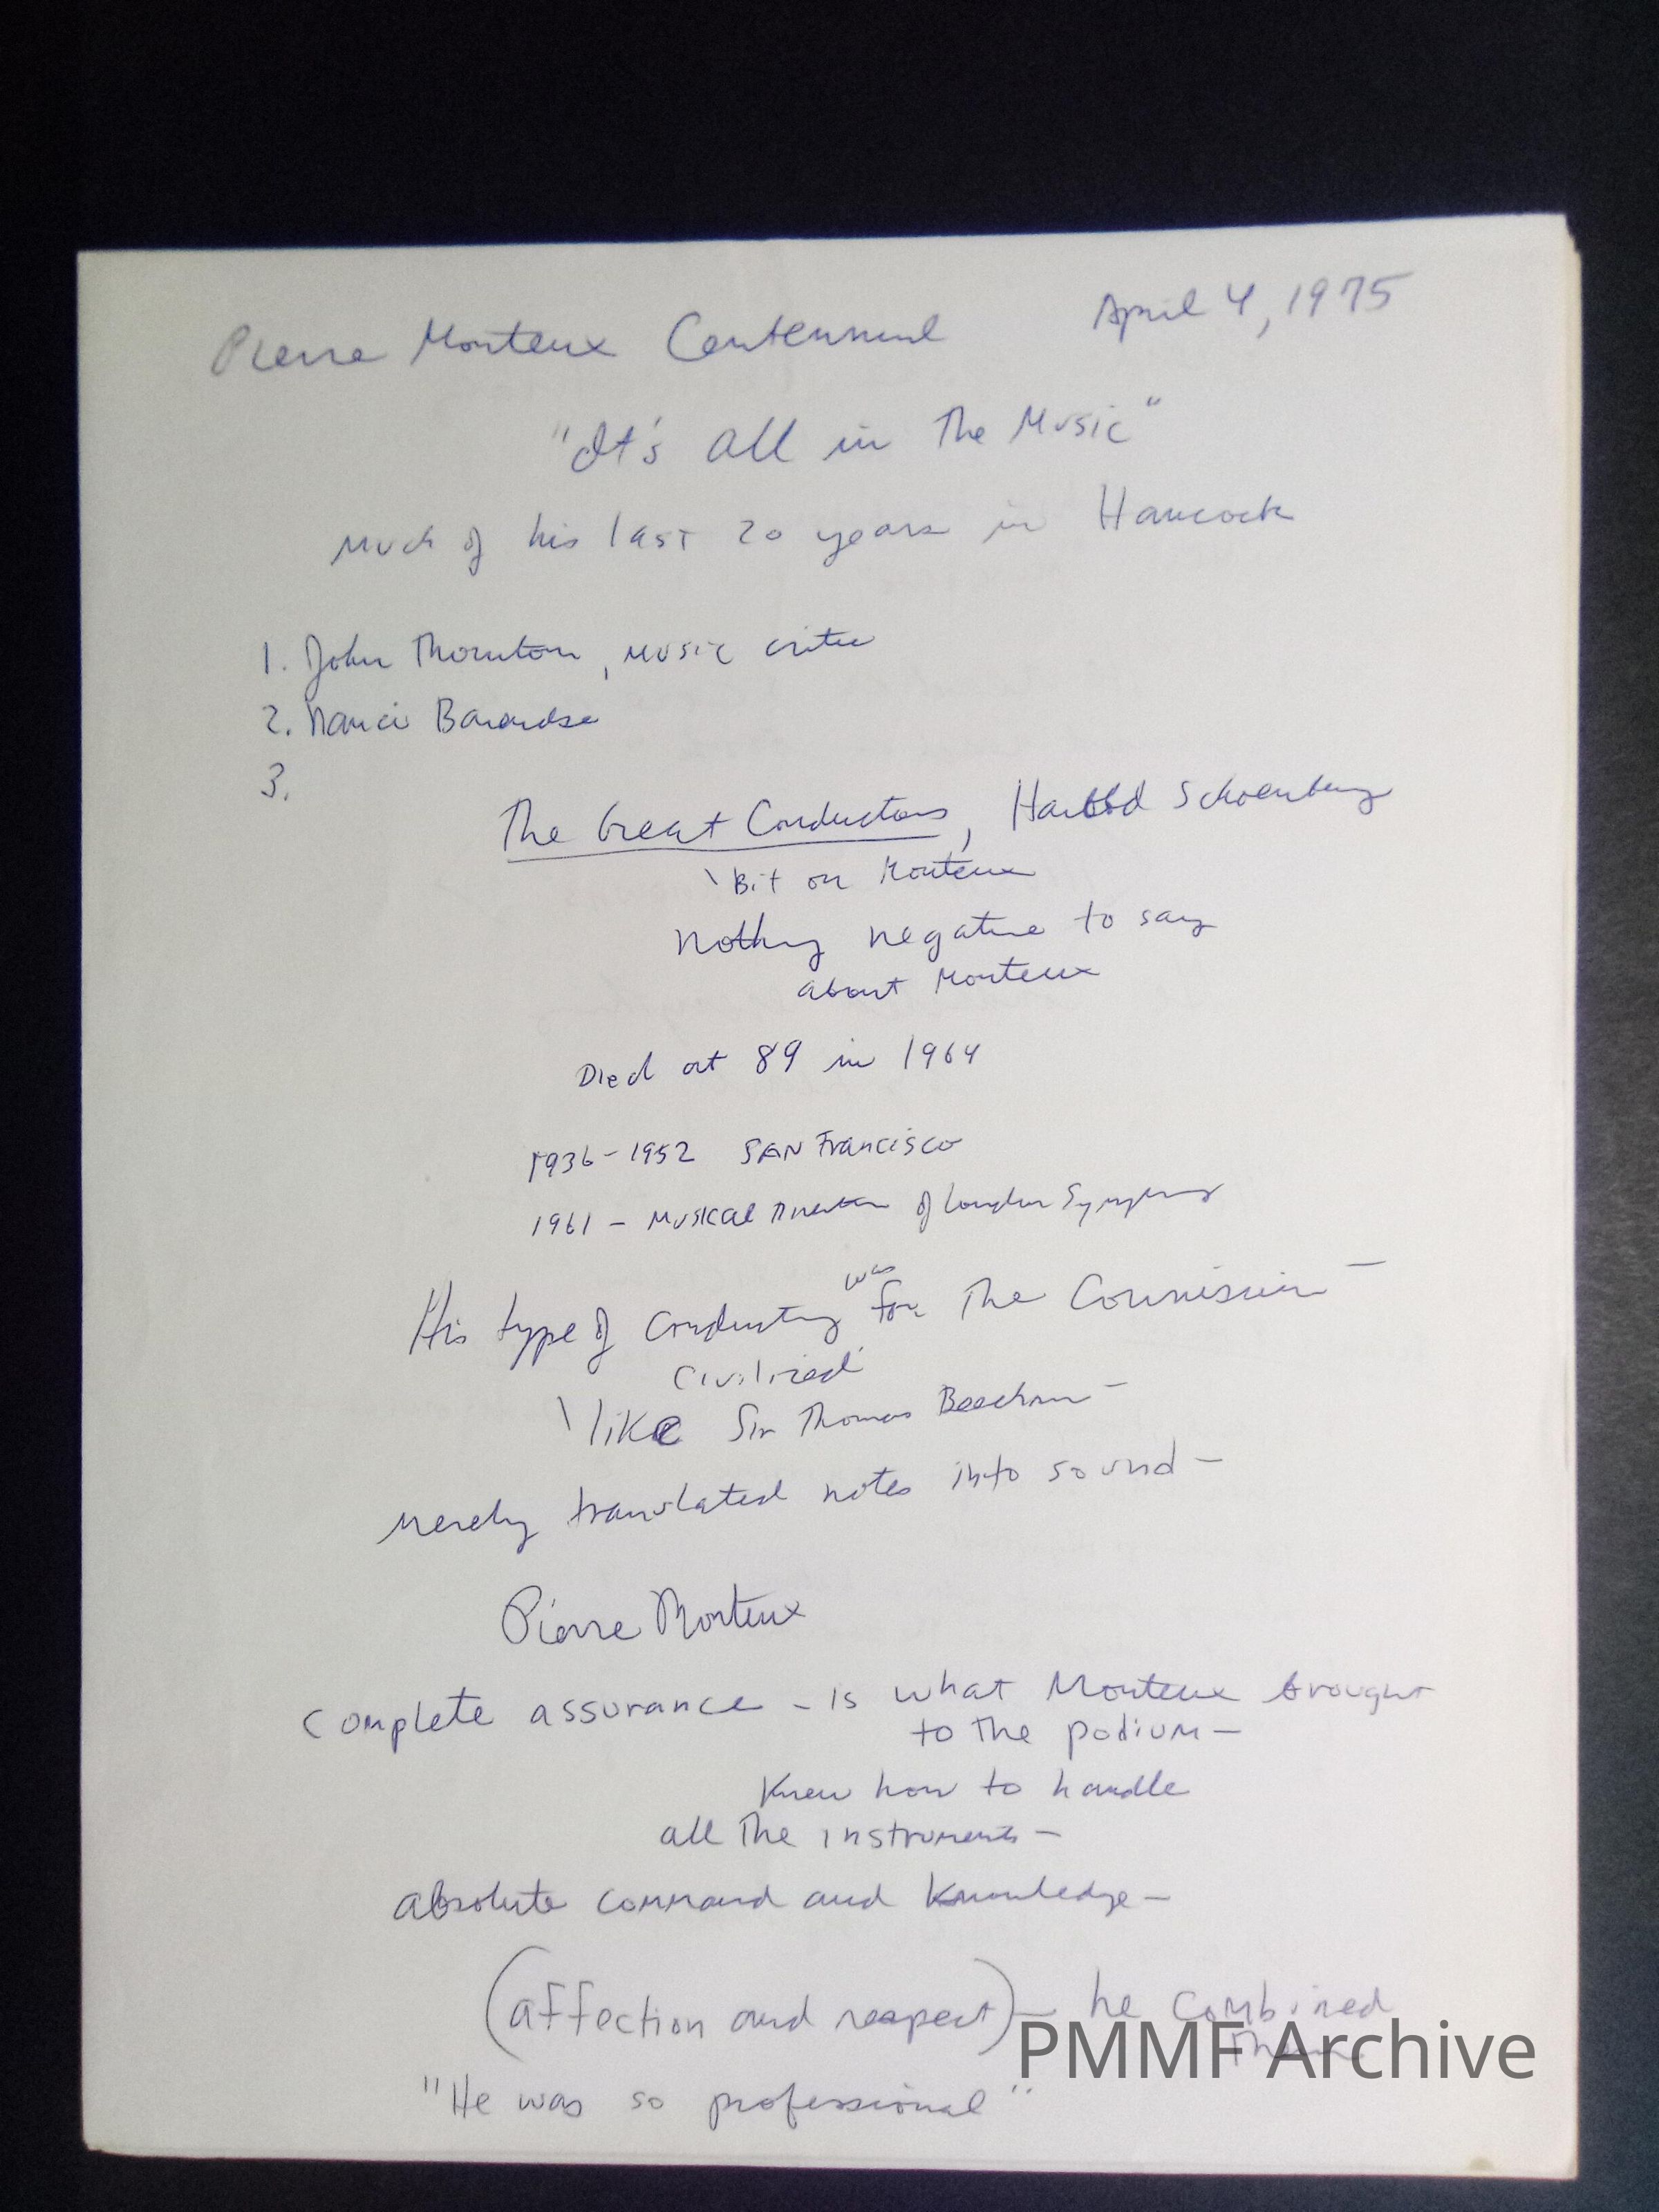 Pierre Monteux Centennial April 4, 1975
"It's all in The Music"
Much of his last 20 years in Hancock
1. John Thornton, music critic
2. Nanci
3.
The Great Conductors, Harold Schoenberg
Bit on Monteux
Nothing negative to say
about Monteux
Died at 89 in 1964
1936-1952 SAN Francisco
1961 - Musical Director of London Symphony
was
His type of conducting for The Connoisseur -
civilized
like Sir Thomas Beecham -
merely translated notes into sound -
Pierre Monteux
Complete assurance - is what Monteux brought
to The podium -
Knew how to handle
all The instruments -
absolute command and knowledge -
(affection and respect) - he combined
Them
"He was so professional"
PMMF Archive